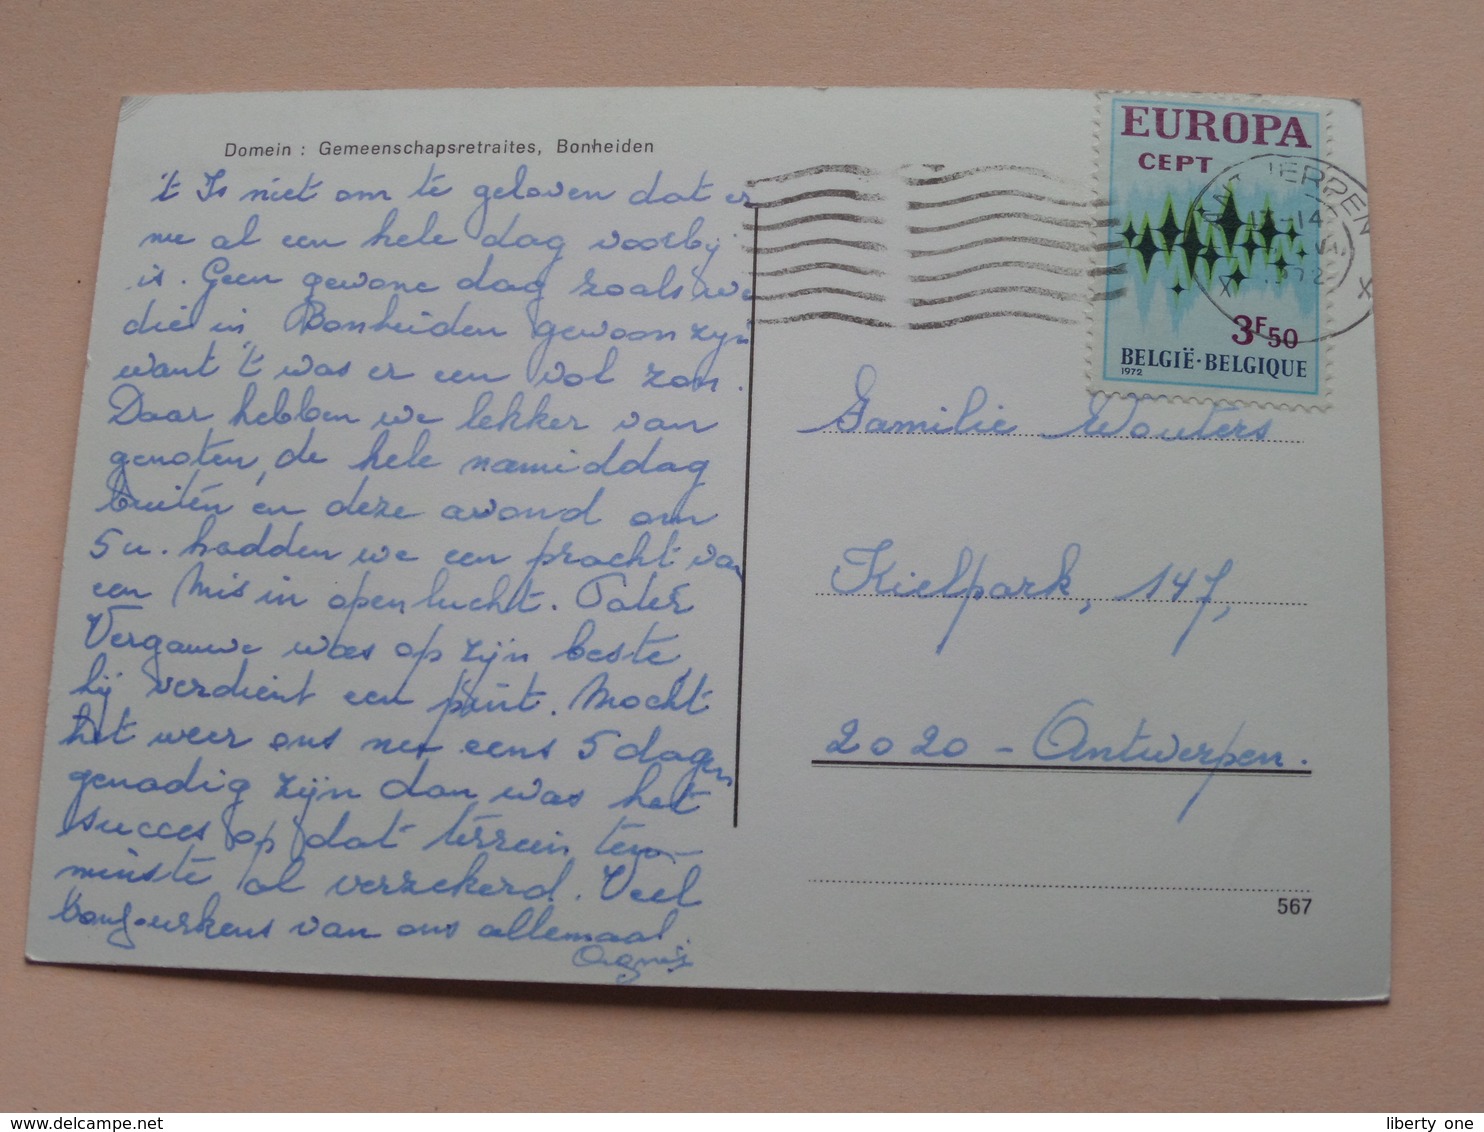 Domein : Gemeenschapsretraites, Bonheiden
't Is niet om te geloven dat er
nu al een hele dag voorbij
is. Geen gewone dag zoals we
die in Bonheiden gewoon zijn
want 't was er een vol zon.
Daar hebben we lekker van
genoten, de hele namiddag
buiten en deze avond om
5 u. hadden we een pracht van
een Mis in openlucht. Pater
Vergauwe was op zijn beste,
hij verdient een pint. Mocht
het weer ons nu eens 5 dagen
genadig zijn dan was het
succes op dat terrein ten-
minste al verzekerd. Veel
van ons allemaal.
Agnes
EUROPA
CEPT
ANTWERPEN
13-14
1972
X X
3F50
BELGIË·BELGIQUE
1972
Familie Wouters
Kielpark, 147,
2020 - Antwerpen.
567
liberty one